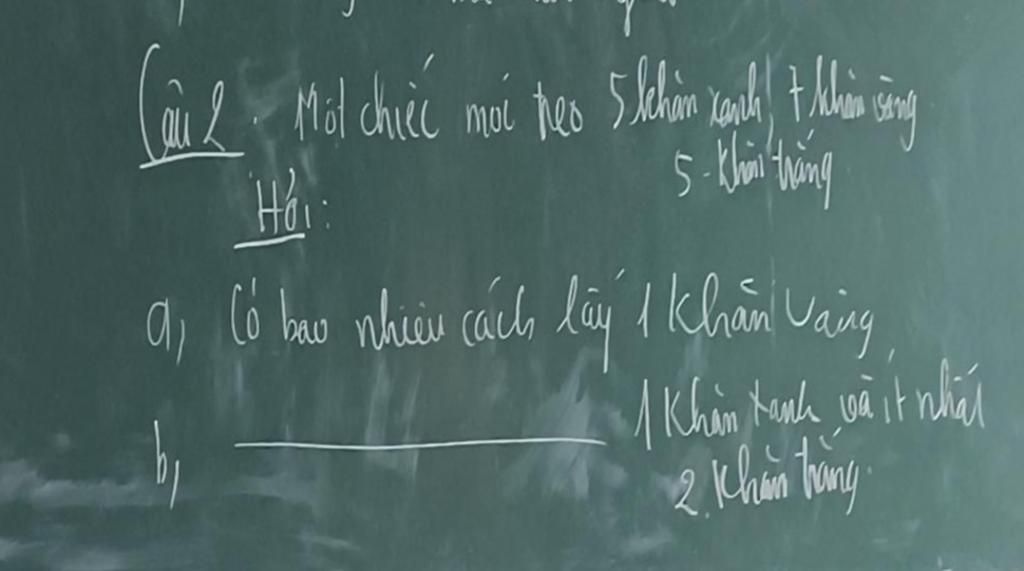 Câu 2. Một chiếc mói treo 5 khăn xanh, 7 khăn vàng
5 - khăn trắng
Hỏi:
a, Có bao nhiêu cách lấy 1 khăn vàng
b, 1 khăn xanh và ít nhất
2. khăn trắng.